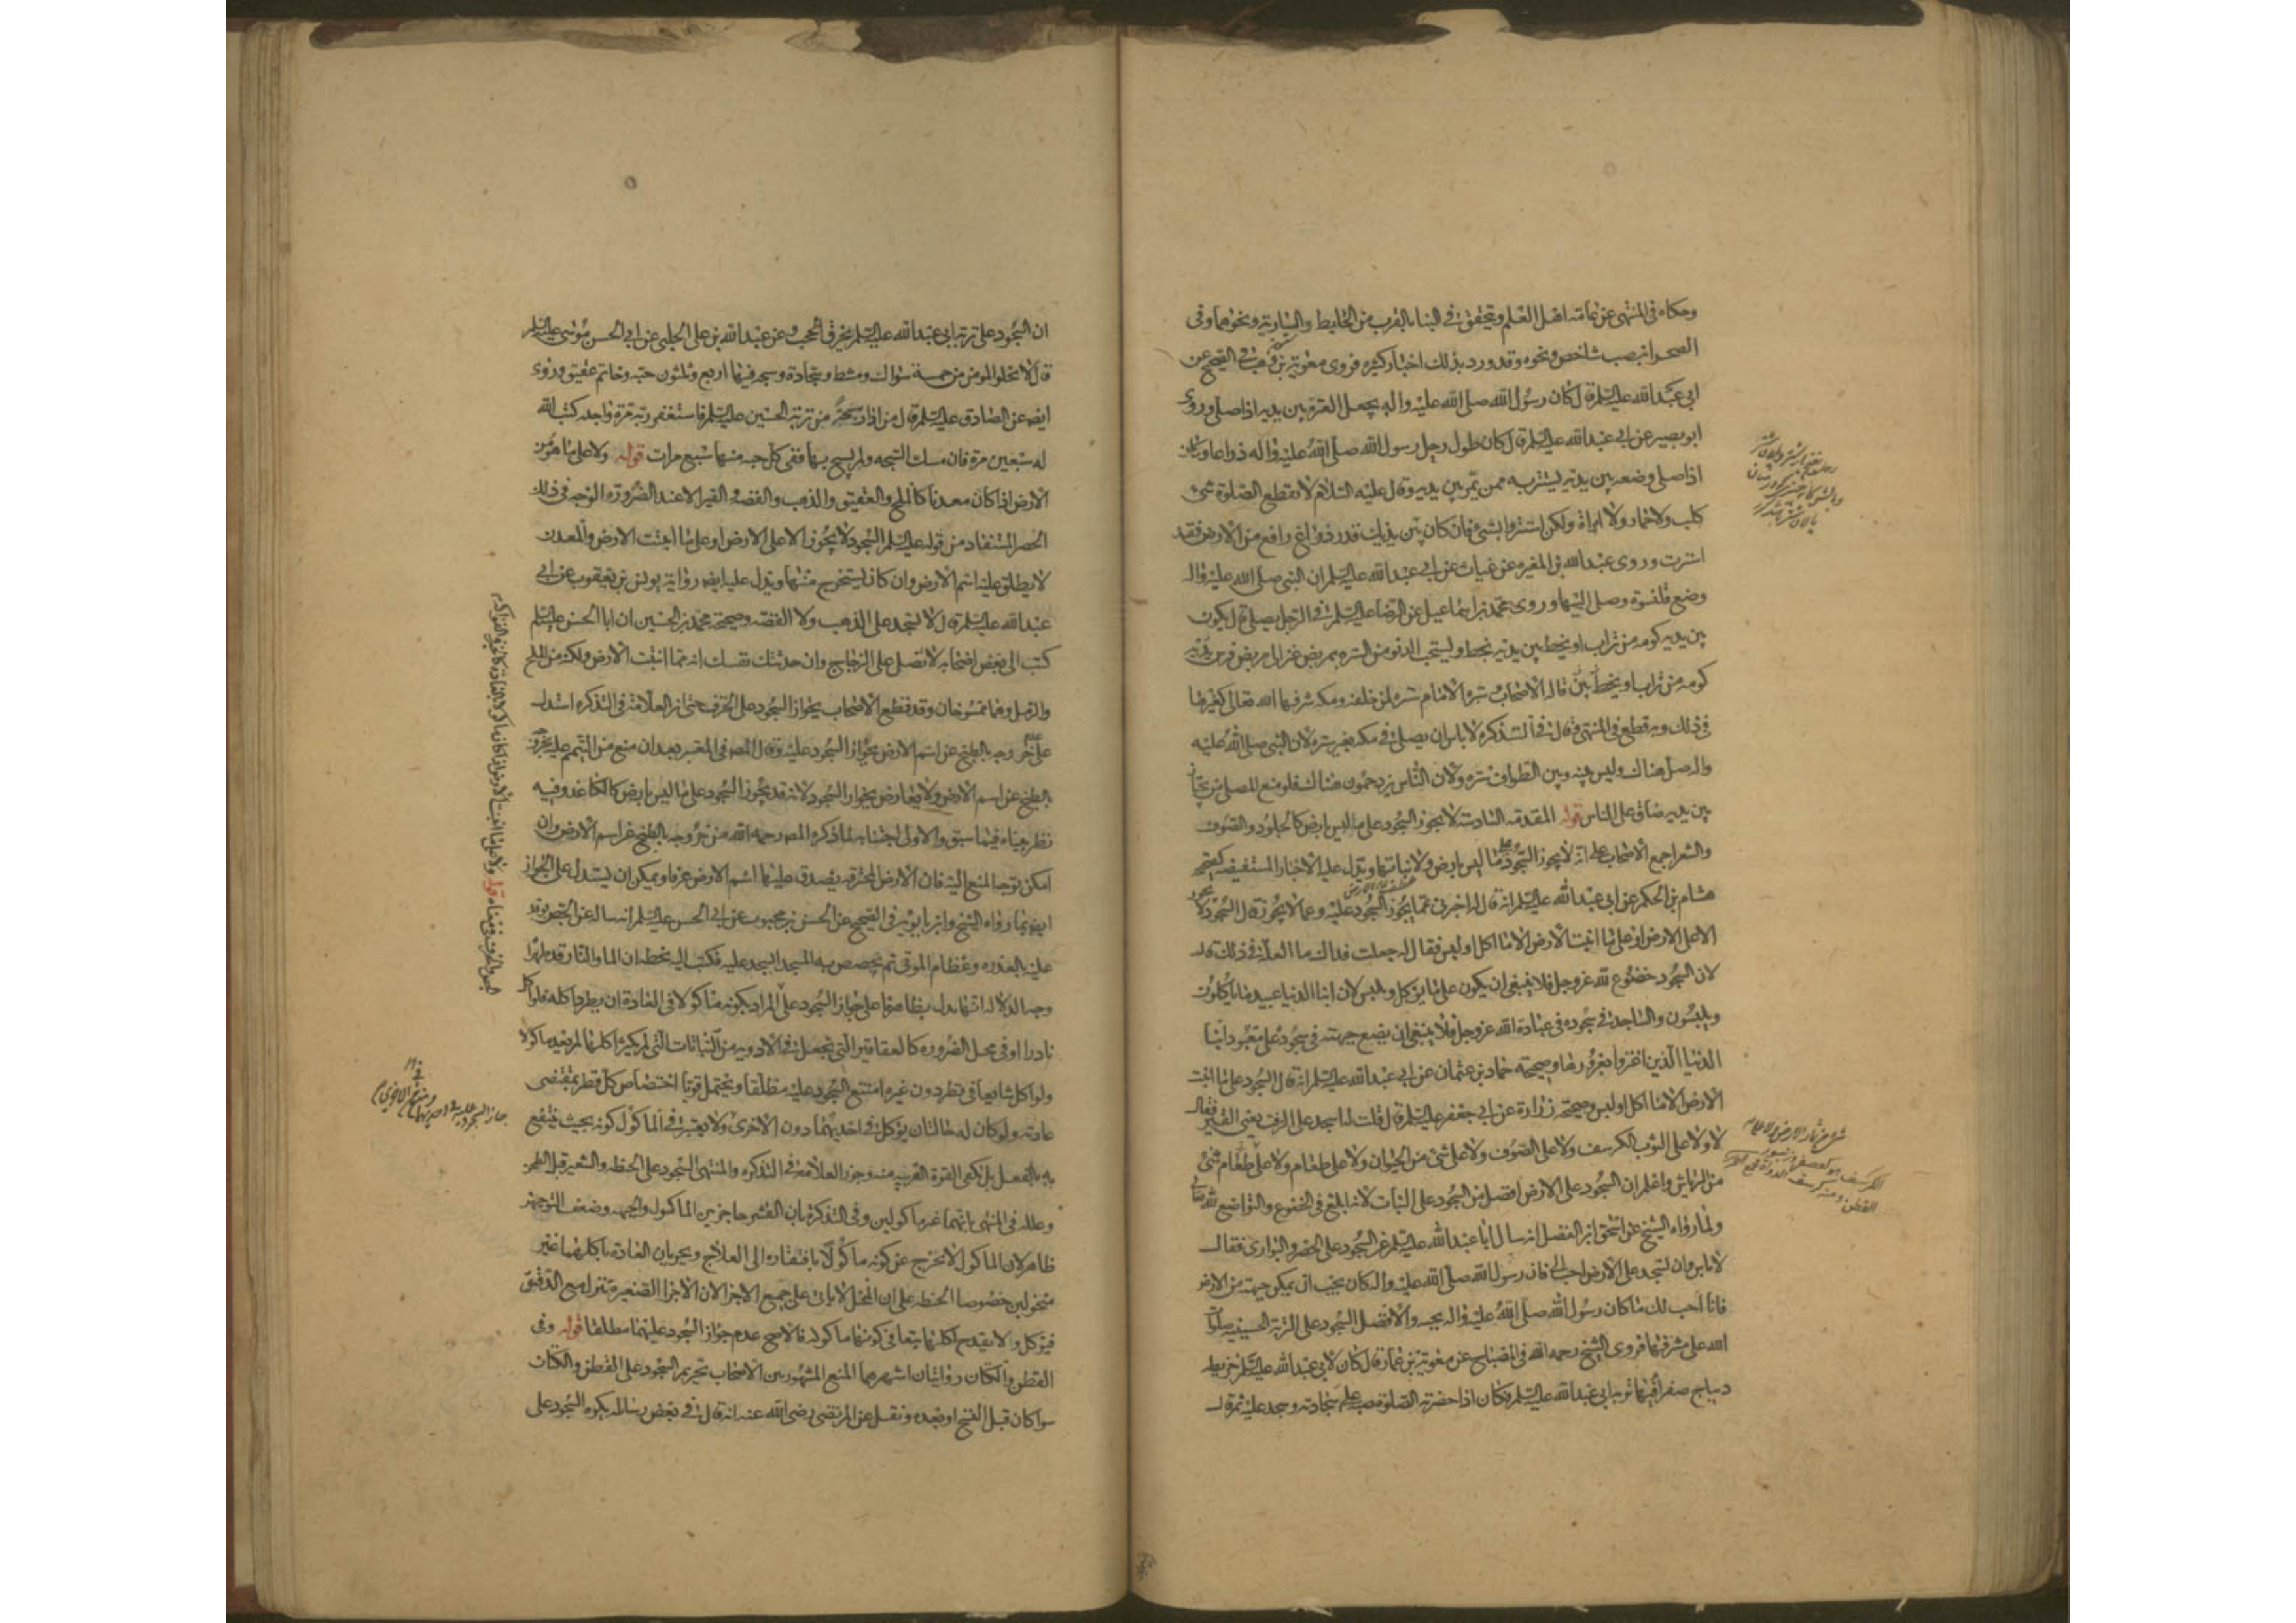 وحكاه في المنتهى عن عامة اهل العلم ويتحقق في البناء بالقرب من الحايط والسارية ونحوهما وفى
الصحراء بنصب شاخص ونحوه وقد ورد بذلك اخبار كثيره فروى معوية بن وهب في الصحيح عن
ابى عبد الله عليه السلم قال كان رسول الله صلى الله عليه واله يجعل العنزة بين يديه اذا صلى وروى
ابو بصير عن ابى عبد الله عليه السلم قال كان طول رحل رسول الله صلى الله عليه واله ذراعا وكان
اذا صلى وضعه بين يديه ليستتر به ممن يمر بين يديه وقال عليه السلام لا يقطع الصلوة شئ
كلب ولا حمار ولا امراة ولكن استتروا بشئ فان كان بين يديك قدر ذراع رافع من الارض فقد
استترت وروى عبد الله بن المغيره عن غياث عن ابى عبد الله عليه السلم ان النبى صلى الله عليه واله
وضع قلنسوة وصلى اليها وروى محمد بن اسماعيل عن الرضا عليه السلم في الرجل يصلى قال يكون
بين يديه كومه من تراب او يخط بين يديه بخط ويستحب الدنو من الستره بمربض عنز الى مربض فرس
كومه من تراب او يخط قاله الاصحاب وستره الامام ستره لمن خلفه ومكه شرفها الله تعالى كغيرها
في ذلك وبه قطع في المنتهى وقال في التذكره لا باس ان يصلى في مكه بغير ستره لان النبى صلى الله عليه
واله صلى هناك وليس بينه وبين الطواف ستره ولان الناس يزدحمون هناك فلو منع المصلى من يجتاز
بين يديه ضاق على الناس قوله المقدمه السادسه لا يجوز السجود على ما ليس بارض كالجلود والصوف
والشعر اجمع الاصحاب على انه لا يجوز السجود على ما ليس بارض ولا نباتها ويدل عليه الاخبار المستفيضه كصحيحه
هشام بن الحكم عن ابى عبد الله عليه السلم انه قال له اخبرنى عما يجوز السجود عليه وعما لا يجوز قال السجود لا يجوز
الا على الارض او على ما انبتت الارض الا ما اكل او لبس فقال له جعلت فداك ما العله في ذلك قال
لان السجود خضوع لله عز وجل فلا ينبغى ان يكون على ما يؤكل ويلبس لان ابناء الدنيا عبيد ما ياكلون
ويلبسون والساجد في سجوده في عبادة الله عز وجل فلا ينبغى ان يضع جبهته في سجوده على معبود ابناء
الدنيا الذين اغتروا بغرورها وصحيحه حماد بن عثمان عن ابى عبد الله عليه السلم انه قال السجود على ما انبتت
الارض الا ما اكل او لبس وصحيحه زرارة عن ابى جعفر عليه السلم قال قلت له اسجد على الزفت يعنى القير فقال
لا ولا على الثوب الكرسف ولا على الصوف ولا على شئ من الحيوان ولا على طعام ولا على شئ
من الرياش واعلم ان السجود على الارض افضل من السجود على النبات لانه ابلغ في الخضوع والتواضع لله تعالى
ولما رواه الشيخ عن اسحق بن الفضل انه سال ابا عبد الله عليه السلم عن السجود على الحصر والبوارى فقال
لا باس وان تسجد على الارض احب الى فان رسول الله صلى الله عليه واله كان يحب ان يمكن جبهته من الارض
فانا احب لك ما كان رسول الله صلى الله عليه واله يحبه والافضل السجود على التربة الحسينيه صلوات
الله على مشرفها فروى الشيخ رحمه الله في المصباح عن معوية بن عمار قال كان لابى عبد الله عليه السلم خريطه
ديباج صفراء فيها تربه ابى عبد الله عليه السلم فكان اذا حضرته الصلوة صبه على سجادته وسجد عليه ثم قال
ان السجود على تربه ابى عبد الله عليه السلم يخرق الحجب وعن عبد الله بن على الحلبى عن ابى الحسن موسى عليه السلم
قال لا يخلو المومن من خمسة سواك ومشط وسجادة وسبحه فيها اربع وثلثون حبه وخاتم عقيق وروى
ايضا عن الصادق عليه السلم قال من ادار سبحة من تربة الحسين عليه السلم فاستغفر ربه مرة واحده كتب الله
له سبعين مرة فان مسك السبحه ولم يسبح بها ففى كل حبه منها سبع مرات قوله ولا على ما هو من
الارض اذا كان معدنا كالملح والعقيق والذهب والفضه والقير الا عند الضروره الوجه في ذلك
الحصر المستفاد من قوله عليه السلم السجود لا يجوز الا على الارض او على ما انبتت الارض والمعدن
لا يطلق عليه اسم الارض وان كان يستخرج منها ويدل عليه ايضا رواية يونس بن يعقوب عن ابى
عبد الله عليه السلم قال لا تسجد على الذهب ولا الفضه وصحيحه محمد بن الحسين ان ابا الحسن عليه السلم
كتب الى بعض اصحابه لا تصل على الزجاج وان حدثتك نفسك انه مما انبتت الارض ولكنه من الملح
والرمل وهما ممسوخان وقد قطع الاصحاب بجواز السجود على الخزف حتى ان العلامة في التذكره استدل
على خروجه بالطبخ عن اسم الارض بجواز السجود عليه وقال المصـ في المعتبر بعد ان منع من التيمم عليه بخروجه
بالطبخ عن اسم الارض ولا يعارض بجواز السجود لانه قد يجوز السجود على ما ليس بارض كالكاغد وفيه
نظر بيناه فيما سبق والاولى اجتنابه لما ذكره المصـ رحمه الله من خروجه بالطبخ عن اسم الارض وان
امكن توجه المنع اليه فان الارض المحترقه يصدق عليها اسم الارض عرفا ويمكن ان يستدل على الجواز
ايضا بما رواه الشيخ وابن بابويه في الصحيح عن الحسن بن محبوب عن ابى الحسن عليه السلم انه ساله عن الجص يوقد
عليه بالعذره وعظام الموتى ثم يجصص به المسجد ايسجد عليه فكتب اليه بخطه ان الماء والنار قد طهراه
وجه الدلاله انها تدل بظاهرها على جواز السجود على المراد بكونه ماكولا في العادة ان يطرد اكله فلو اكل
نادرا او في محل الضروره كالعقاقير التى تجعل في الادويه من النباتات التى لم يكثر اكلها لم يعد ماكولا
ولو اكل شايعا في قطر دون غيره امتنع السجود عليه مطلقا ويحتمل قويا اختصاص كل قطر بمقتضى
عادته ولو كان له حالتان يؤكل في احديهما دون الاخرى ولا يعتبر في الماكول كونه بحيث ينتفع
به بالفعل بل تكفى القوة القريبه منه وجوز العلامة في التذكره والمنتهى السجود على الحنطه والشعير قبل الطحن
وعلله في المنتهى بانهما غير ماكولين وفى التذكرة بان القشر حاجز بين الماكول والجبهه وضعف التوجيهين
ظاهر لان الماكول لا يخرج عن كونه ماكولا بافتقاره الى العلاج وبجريان العادة باكلهما غير
منخولين خصوصا الحنطه على ان النخل لا ياتى على جميع الاجزاء لان الاجزاء الصغيرة تنزل مع الدقيق
فتؤكل ولا يقدح اكلها تبعا في كونها ماكوله فالاصح عدم جواز السجود عليهما مطلقا قوله وفى
القطن والكتان روايتان اشهرهما المنع المشهور بين الاصحاب تحريم السجود على القطن والكتان
سواء كان قبل الغزل او بعده ونقل عن المرتضى رضى الله عنه انه قال في بعض رسائله يكره السجود على
الجص والخزف فى معناه قوله ولا على ما انبتت الارض اذا كان ماكولا بالعادة كالخبز والفواكه
جاز السجود عليه في احديهما ومنع في الاخرى